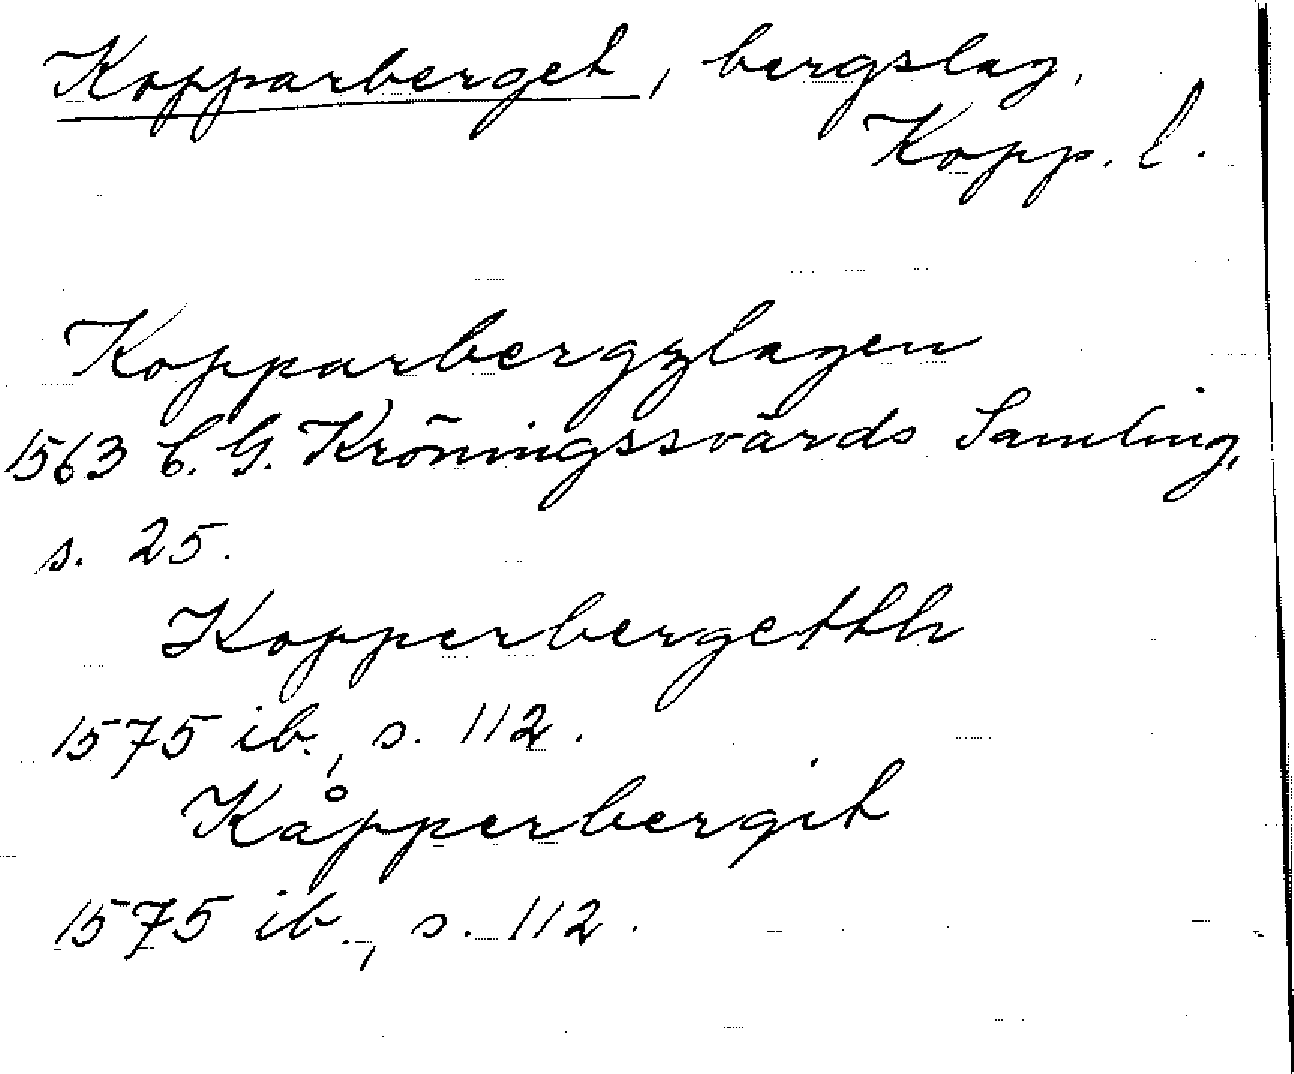 Kopparberget, bergslag,
Kopp. l.
Kopparbergzlagen
1563 C. G. Kröningssvärds Samling,
s. 25.
Kopperbergetthh
1575 ib., s. 112.
Kåpperbergit
1575 ib., s. 112.